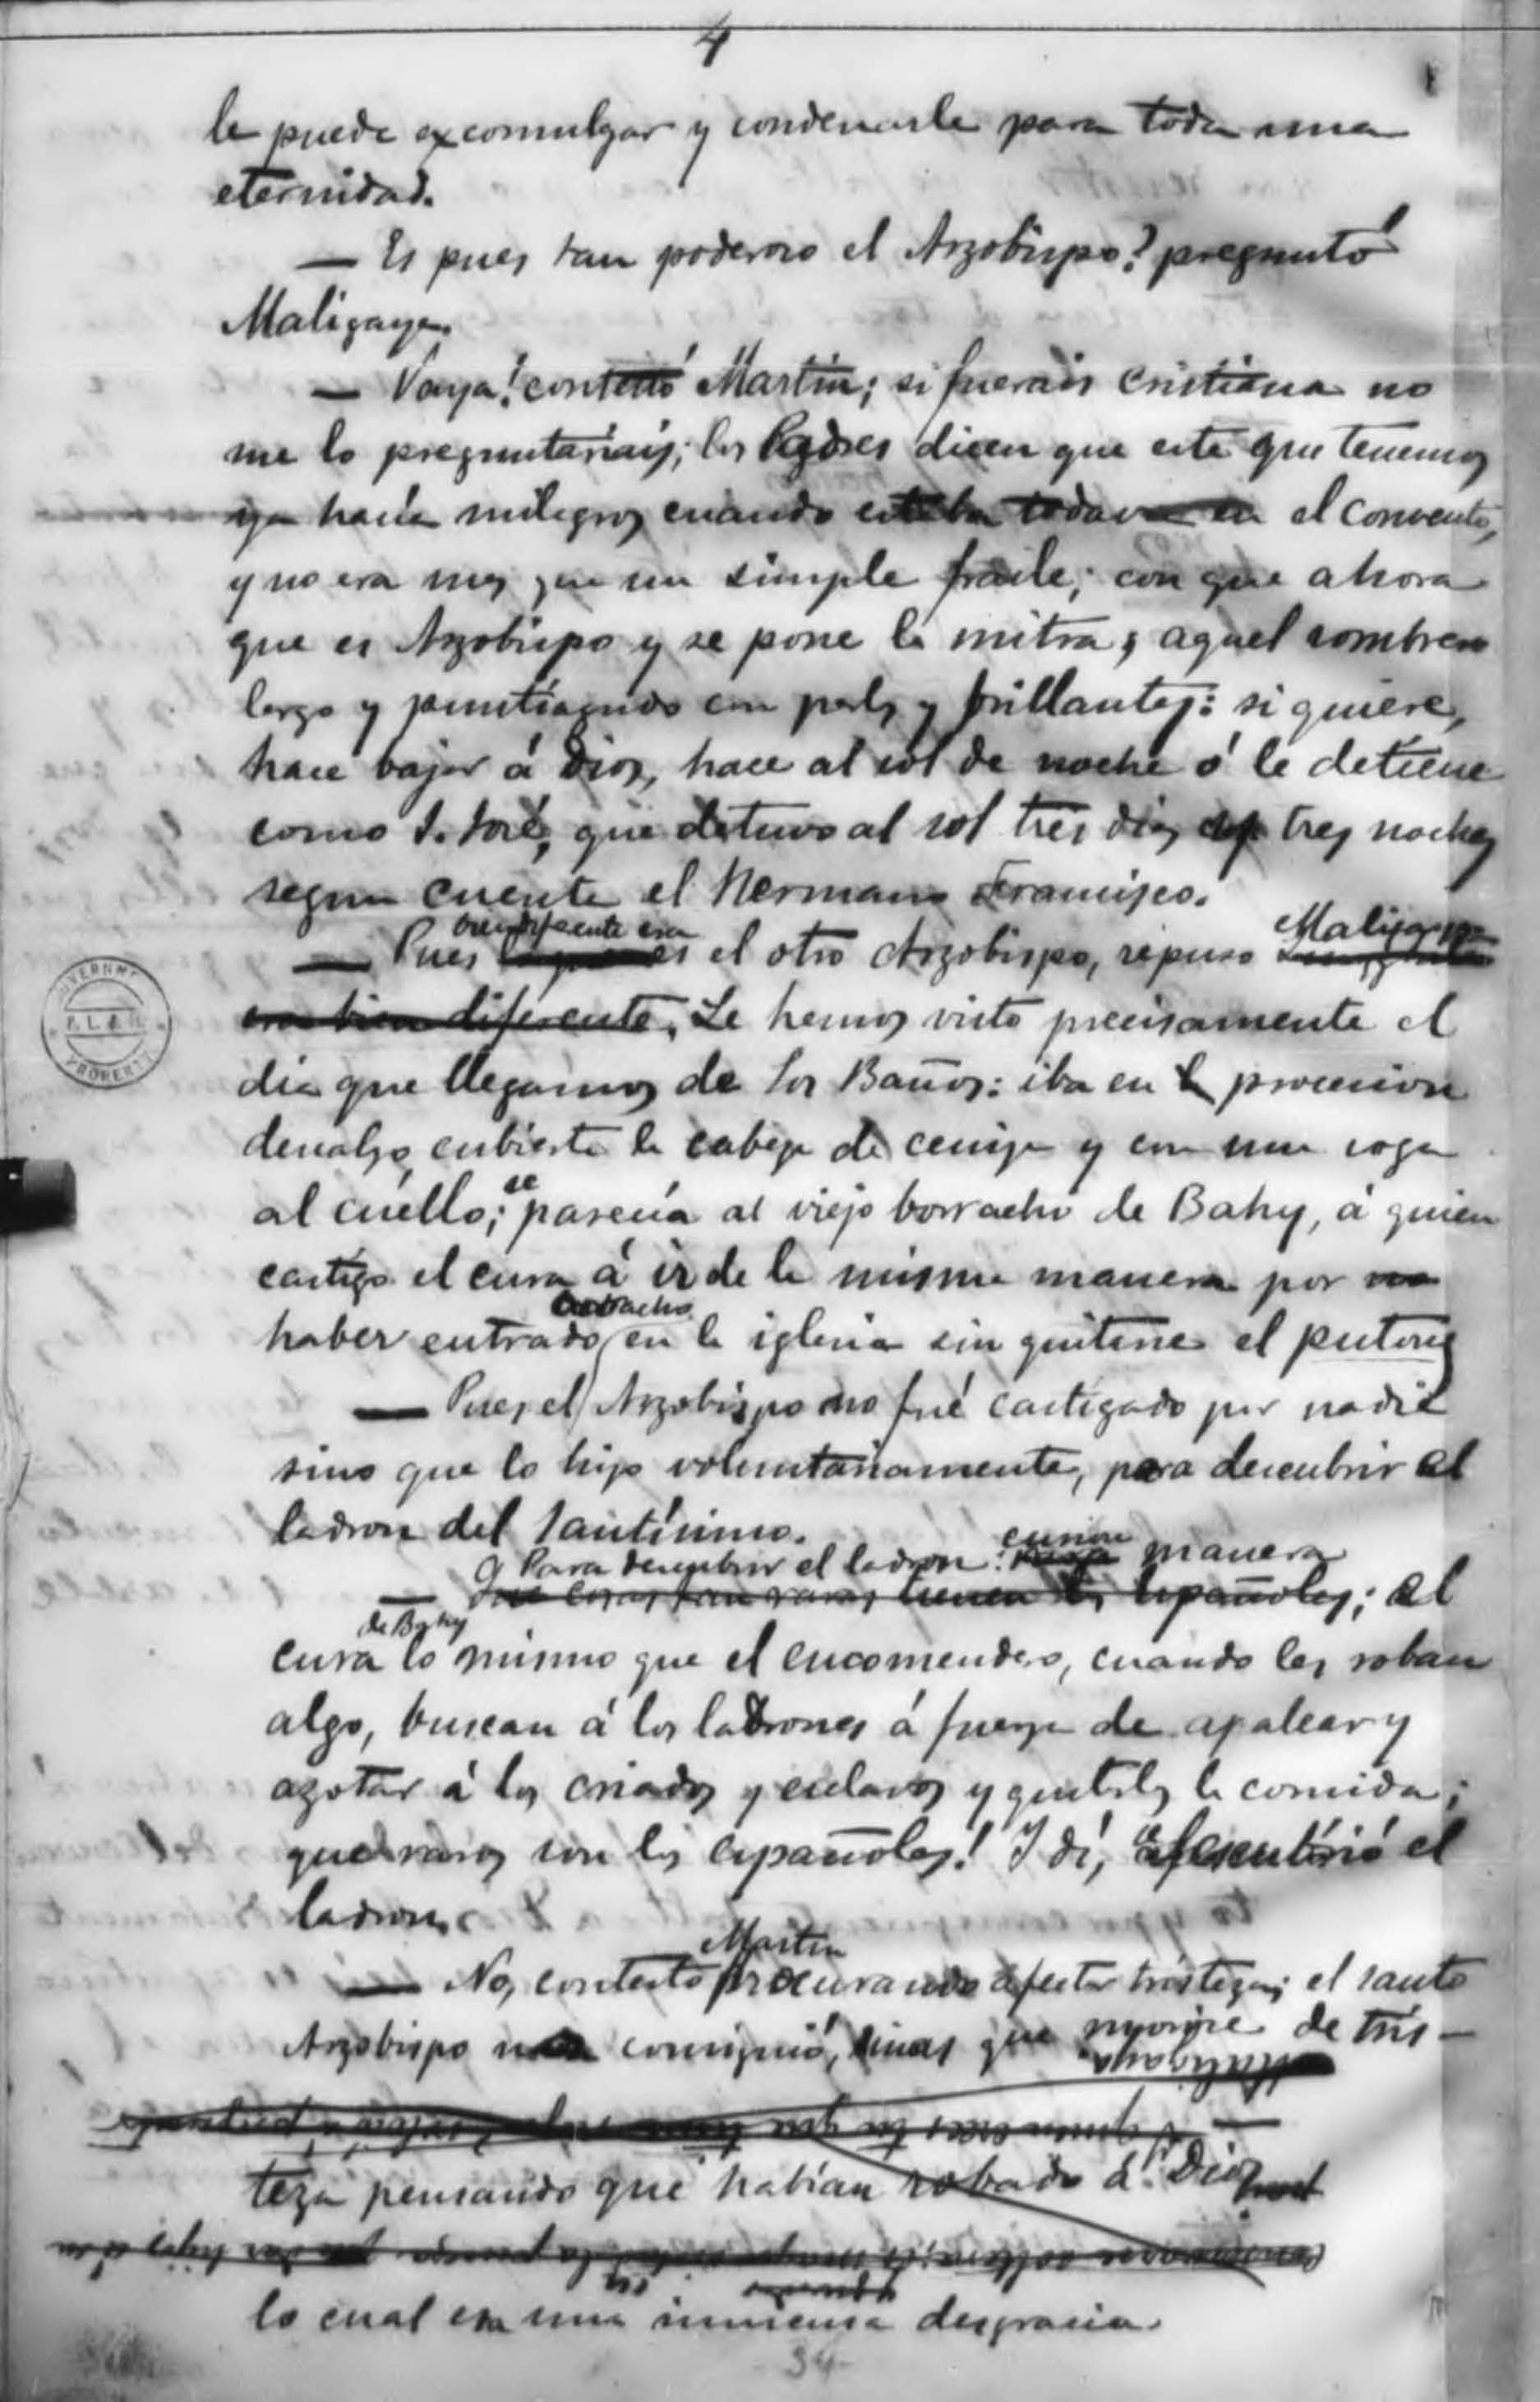 4
le puede excomulgar y condenarle para toda una
eternidad.
— Es pues tan poderoso el Arzobispo? preguntó
Maligaya.
— Vaya! contestó Martin; si fuerais cristiana no
me lo preguntariais; los Padres dicen que este que tenemos
ya hacía milagros cuando estaba todavia en el convento,
y no era mas que un simple fraile; con que ahora
que es Arzobispo y se pone la mitra, aquel sombrero
largo y puntiagudo con perlas y brillantes: si quiere,
hace bajar á Dios, hace al sol de noche ó le detiene
como S. José, que detuvo al sol tres dias tres noches
segun cuenta el Hermano Francisco.
bien diferente era Maligaya
— Pues es el otro Arzobispo, repuso
era bien diferente. Le hemos visto precisamente el
dia que llegamos de Los Baños: iba en la procesion
descalzo, cubierta la cabeza de ceniza y con una soga
se
al cuello; parecía al viejo borracho de Bahy, á quien
castigó el cura á ir de la misma manera por no
borracho
haber entrado en la iglesia sin quitarse el putong
— Pues el Arzobispo no fué castigado por nadie
sino que lo hizo voluntariamente, para descubrir al
ladron del Santísimo.
Para descubrir el ladron: curiosa manera
— cosas tan raras tienen los Españoles; el
de Bahy
cura lo mismo que el encomendero, cuando les roban
algo, buscan á los ladrones á fuerza de apalear y
azotar á los criados y esclavos y quitarles la comida;
que raros son los españoles! Y dí, descubrió el
ladron
Martin
— No, contestó procurando afectar tristeza; el santo
Arzobispo no consiguió, sinas que morirse de tris-
Maligaya
teza pensando que habian robado á Dios
lo cual era una inmensa desgracia.
34